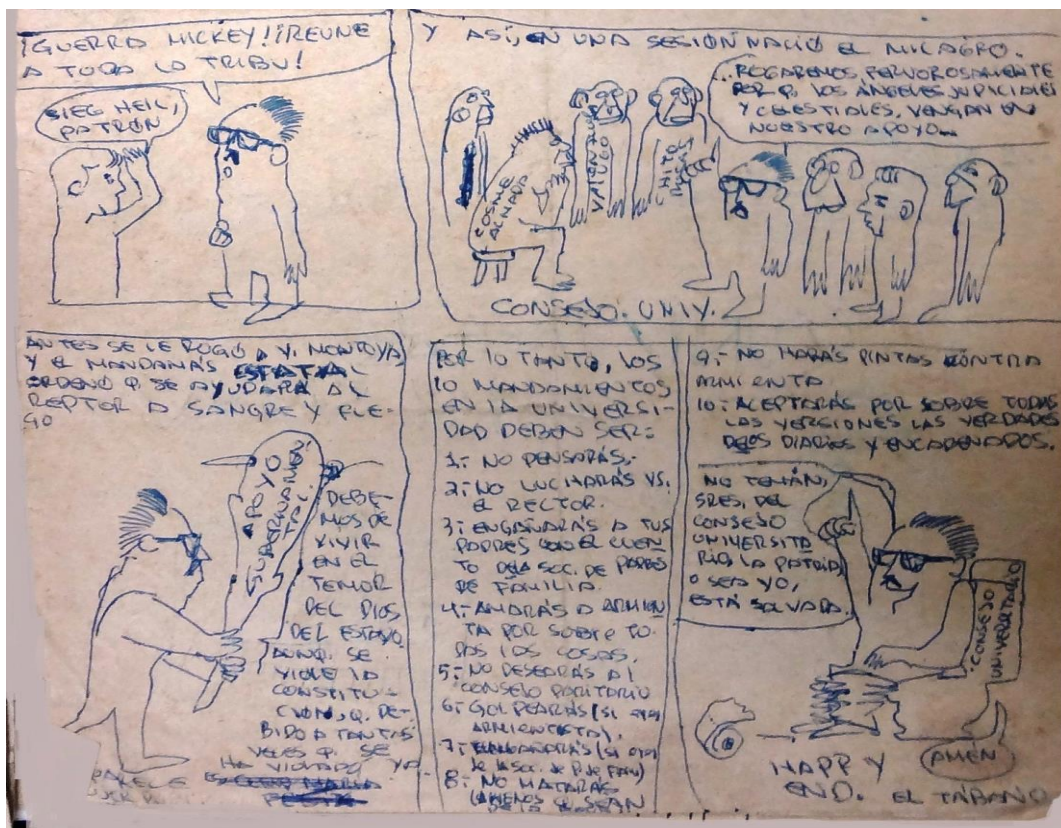 ¡GUERRA MICKEY! ¡REUNE
A TODA LA TRIBU!
SIEG HEIL,
PATRÓN
Y ASÍ, EN UNA SESIÓN NACIÓ EL MILAGRO.
...ROGAREMOS, FERVOROSAMENTE
POR Q. LOS ÁNGELES JUDICIALES
Y CELESTIALES, VENGAN EN
NUESTRO APOYO...
COSME
ALMADA
CHITO
CONSEJO. UNIV.
ANTES SE LE ROGÓ A V. MONTOYA
Y EL MANDAMÁS ESTATAL
ORDENÓ Q. SE AYUDARA AL
REPTOR A SANGRE Y FUE-
GO
APOYO
GUBERNAMEN
TAL.
DEBE-
MOS DE
VIVIR
EN EL
TEMOR
DEL DIOS
DEL ESTADO
AUNQ. SE
VIOLE LA
CONSTITU-
CIÓN, Q. DE-
BIDO A TANTAS
VECES Q. SE
HA VIOLADO YA
PARECE
POR LO TANTO, LOS
10 MANDAMIENTOS
EN LA UNIVERSI-
DAD DEBEN SER:
1.- NO PENSARÁS.-
2.- NO LUCHARÁS VS.
EL RECTOR.
3.- ENGAÑARÁS A TUS
PADRES CON EL CUEN
TO DE LA SOC. DE PADRES
DE FAMILIA.
4.- AMARÁS A ARMIEN
TA POR SOBRE TO-
DAS LAS COSAS.
5.- NO DESEARÁS AL
CONSEJO PARITARIO
6.- GOLPEARÁS (SI ERES
ARMIENTISTA).
7.- (SI ERES
de la Soc. de P. de Fam)
8.- NO MATARÁS
(AMENOS Q. SEAN
9.- NO HARÁS PINTAS CONTRA
ARMIENTA
10.- ACEPTARÁS POR SOBRE TODAS
LAS VERSIONES LAS VERDADES
DE LOS DIARIOS Y ENCADENADOS.
NO TEMÁN,
SRES. DEL
CONSEJO
UNIVERSITA
RIO, LA PATRIA,
O SEA YO,
ESTÁ SALVADA.
CONSEJO
UNIVERSITARIO
HAPPY
END.
AMEN
EL TÁBANO